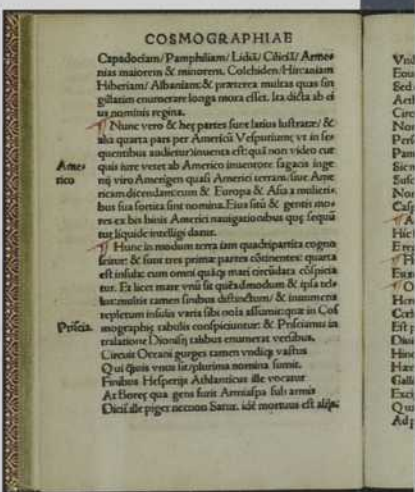 COSMOGRAPHIAE
Capadociam/ Pamphiliam/ Lidiā/ Ciliciā/ Arme-
nias maiorem & minorem. Colchiden/Hircaniam
Hiberiam/ Albaniam: & præterea multas quas sin
gillatim enumerare longa mora esset. Ita dicta ab ei
us nominis regina.
¶ Nunc vero & hęc partes sunt latius lustratæ/ &
alia quarta pars per Americū Vesputium( vt in se-
quentibus audietur )inuenta est: quā non video cur
Ameri-
rico
quis iure vetet ab Americo inuentore sagacis inge
nij viro Amerigen quasi Americi terram/siue Ame
ricam dicendam: cum & Europa & Asia a mulieri-
bus sua sortita sint nomina. Eius sitū & gentis mo-
res ex bis binis Americi nauigationibus quę sequū
tur liquide intelligi datur.
¶ Hunc in modum terra iam quadripartita cogno
scitur: & sunt tres primæ partes cōtinentes: quarta
est insula: cum omni quāq; mari circūdata cōspicia
tur. Et licet mare vnū sit quēadmodum & ipsa tel-
lus: multis tamen sinibus distinctum/ & innumeris
repletum insulis varia sibi noīa assumit: quæ in Cos
Priscia.
mographiæ tabulis conspiciuntur: & Priscianus in
tralatione Dionisij talibus enumerat versibus.
Circuit Oceani gurges tamen vndiq; vastus
Qui q̄uis vnus sit/plurima nomina sumit.
Finibus Hesperijs Athlanticus ille vocatur
At Boreę qua gens furit Armiaspa sub armis
Dicit̄ ille piger necnon Satur. idē mortuus est alijs: